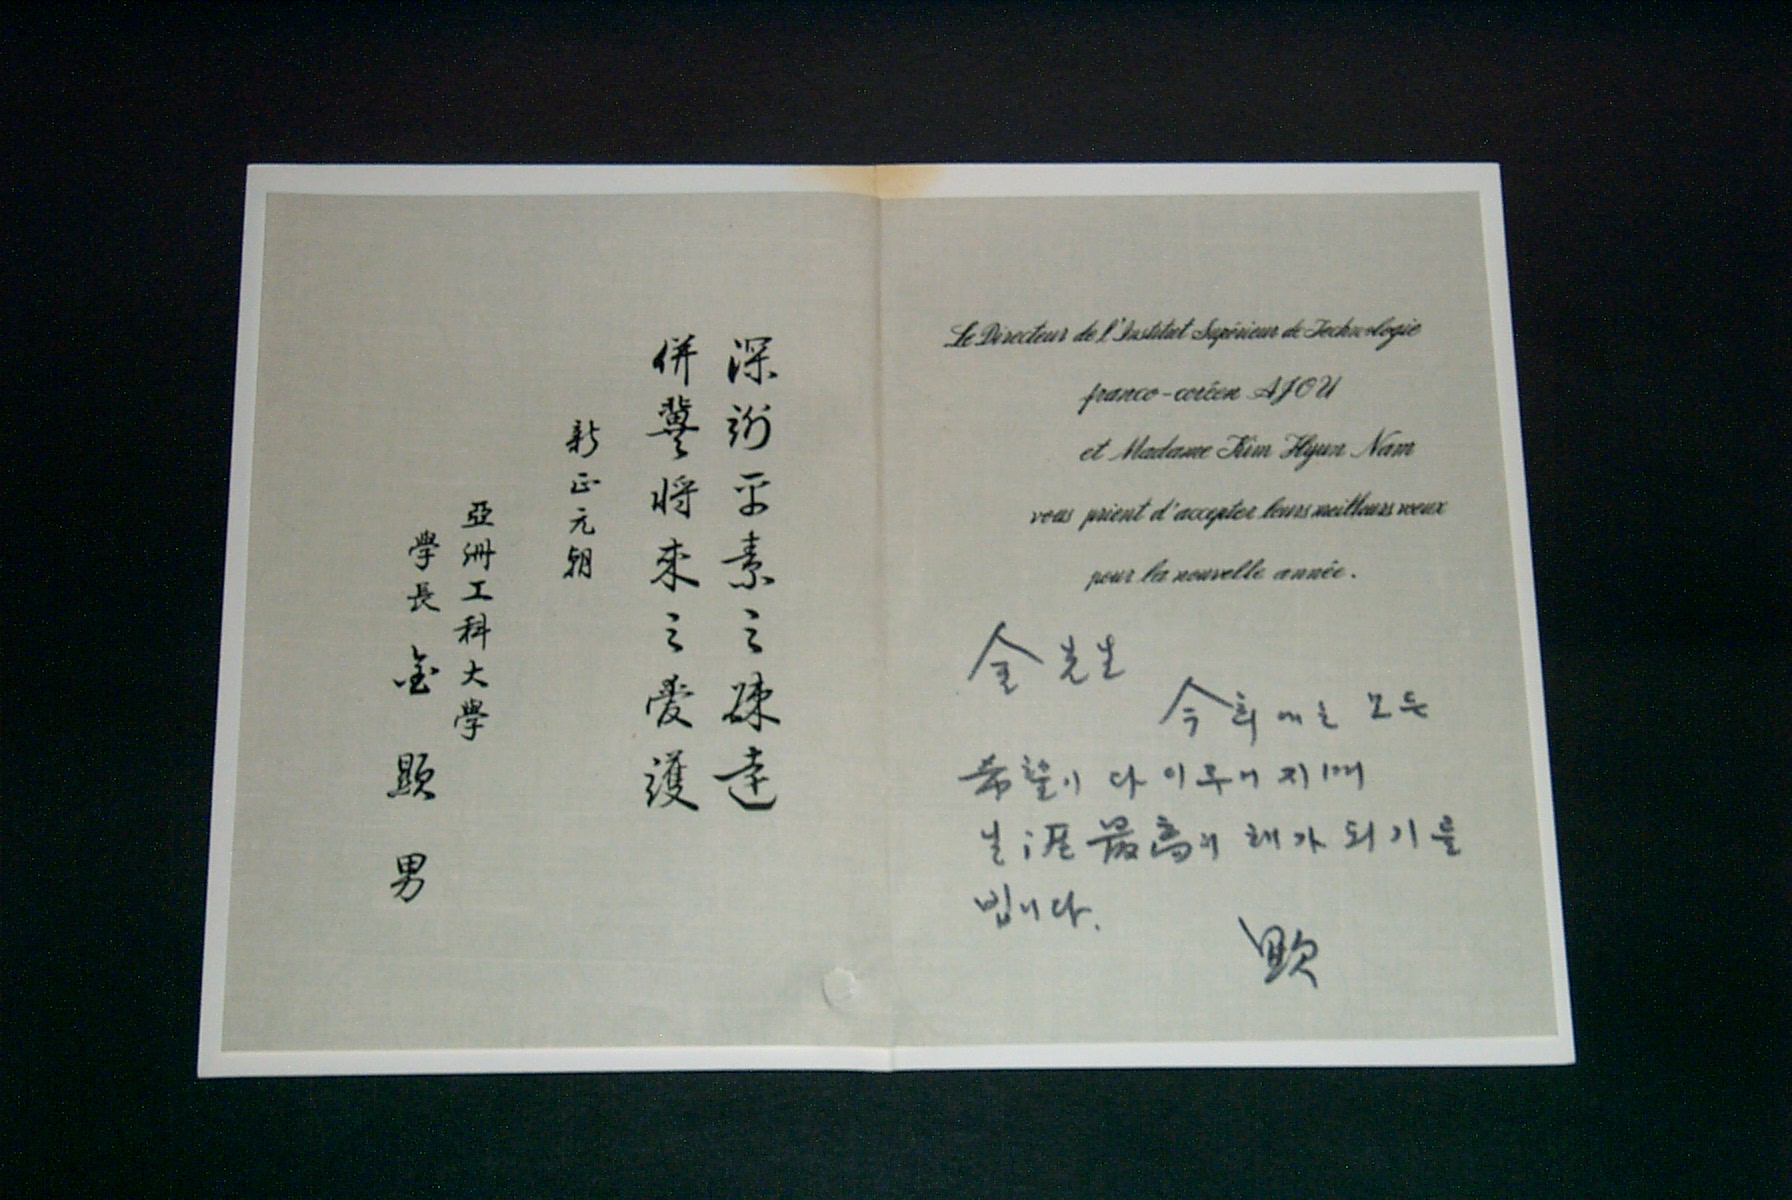 深謝平素之疎達
併冀將來之愛護
新正元朝
亞洲工科大學
學長 金顯男
Le Directeur de l'Institut Supérieur de Technologie
franco-coréen AJOU
et Madame Kim Hyun Nam
vous prient d'accepter leurs meilleurs vœux
pour la nouvelle année.
金先生
모든
希望이 다 이루어지며
生涯最高의 해가 되기를
빕니다.
顯